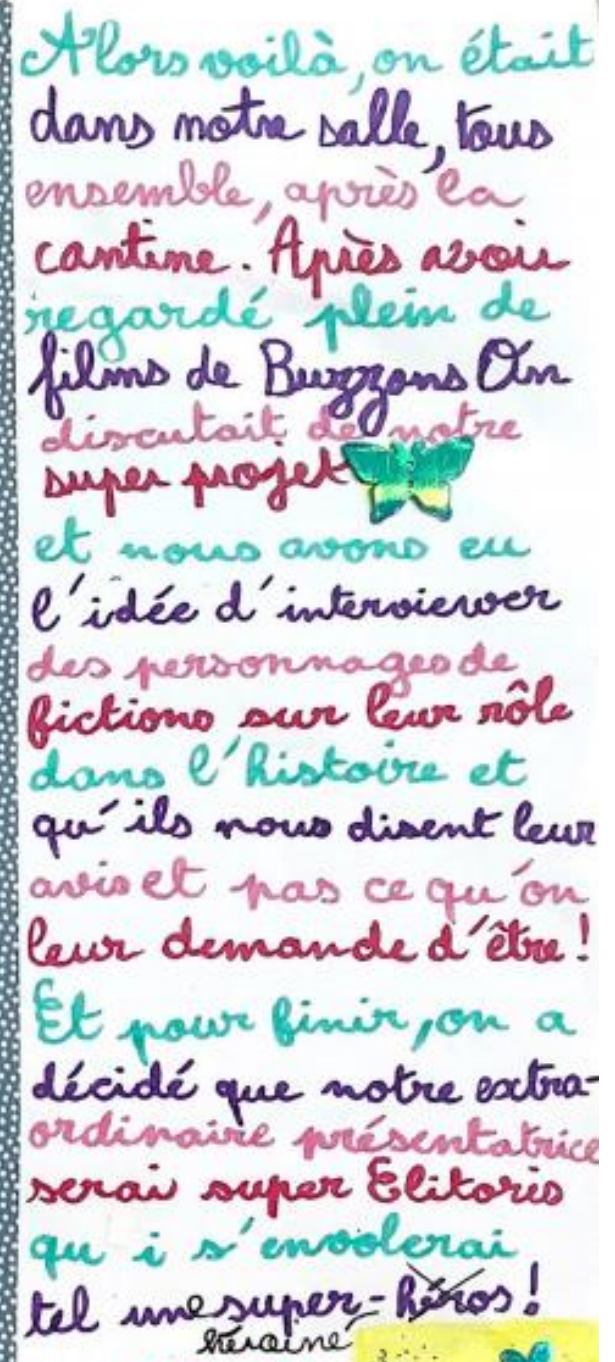 Alors voilà, on était
dans notre salle, tous
ensemble, après la
cantine. Après avoir
regardé plein de
films de Buzzons On
discutait de notre
super projet
et nous avons eu
l'idée d'interviewer
des personnages de
fictions sur leur rôle
dans l'histoire et
qu'ils nous disent leur
avis et pas ce qu'on
leur demande d'être!
Et pour finir, on a
décidé que notre extra-
ordinaire présentatrice
serai super Elitoris
qui s'envolerai
tel une super-héros!
héroïne